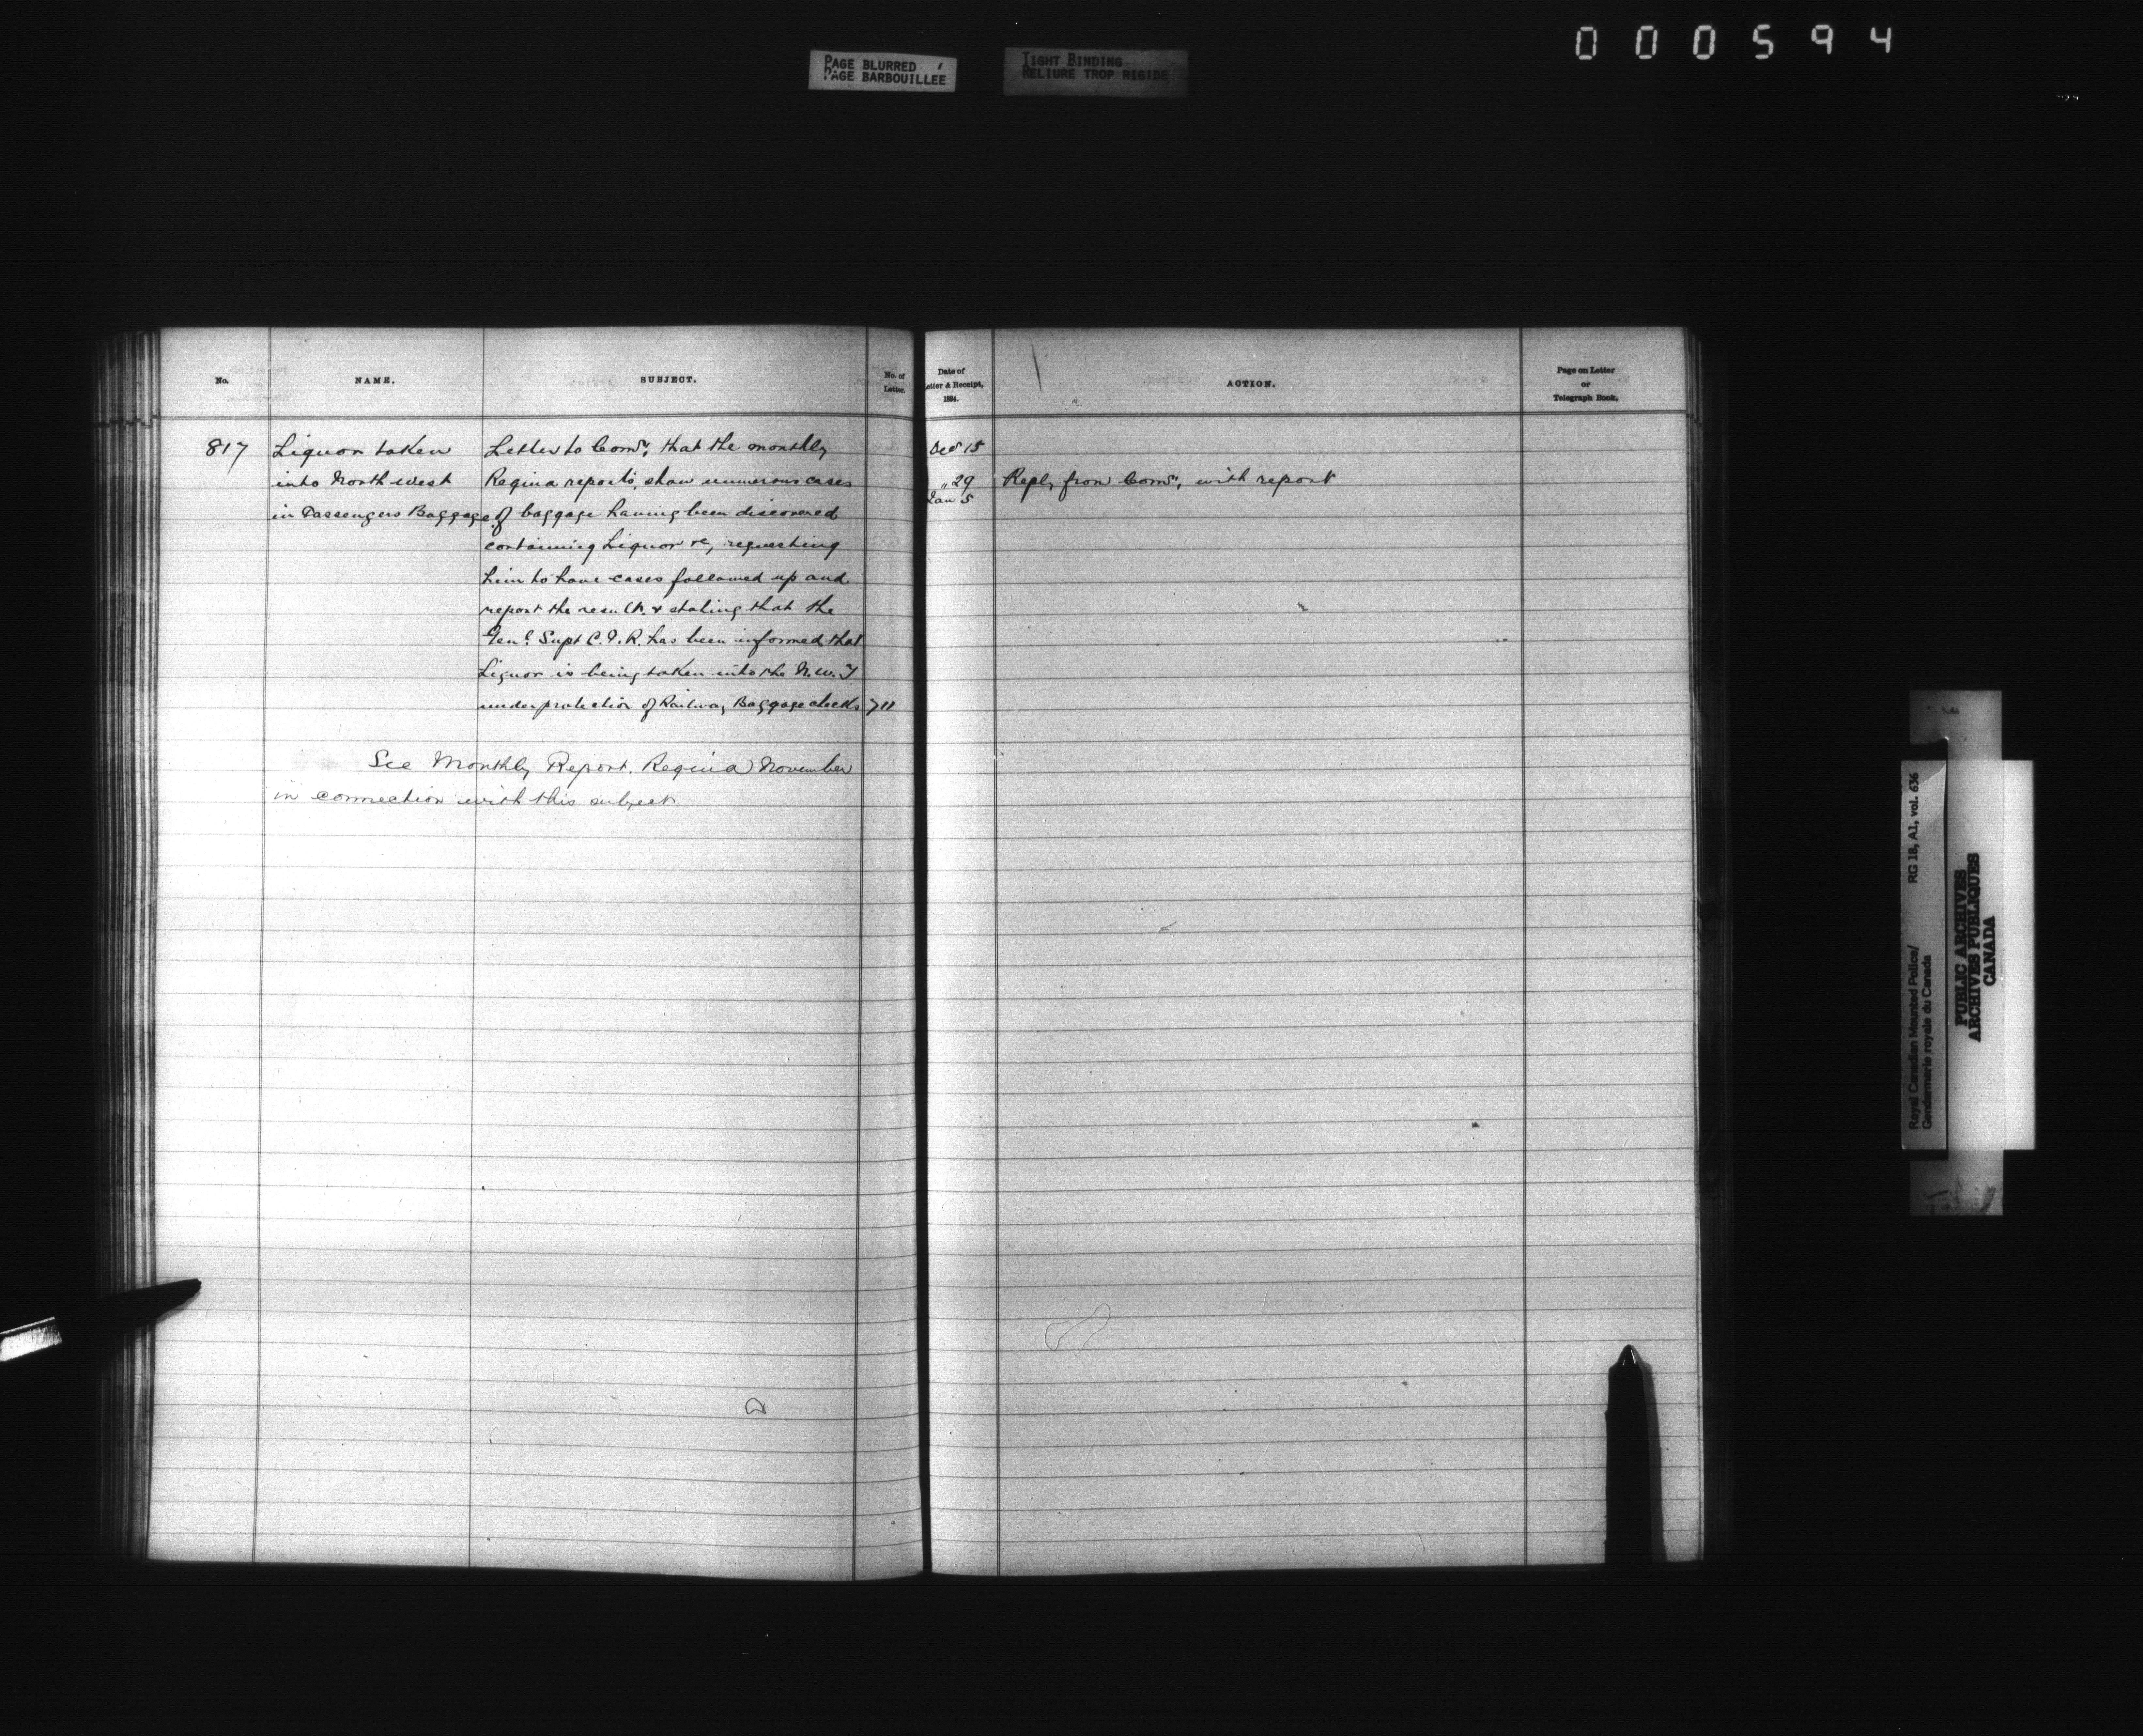 PAGE BLURRED
PAGE BARBOUILLÉE
TIGHT BINDING
RELIURE TROP RIGIDE
000594
No.
NAME.
SUBJECT.
No. of
Letter.
817
Liquor taken
into North West
in Passengers Baggage
Letter to Comr; that the monthly
Regina reports, show numerous cases
of baggage having been discovered
containing Liquor &c, requesting
him to have cases followed up and
report the result. & stating that the
Genl Supt C.P.R. has been informed that
Liquor is being taken into the N.W.T
under protection of Railway Baggage checks 711
See Monthly Report. Regina November
in connection with this subject
Date of
Letter & Receipt,
1884.
ACTION.
Page on Letter
or
Telegraph Book.
Dec 15
" 29
Jan 5
Reply from Comr, with report
Royal Canadian Mounted Police/ RG 18, A1, vol. 636
Gendarmerie royale du Canada
PUBLIC ARCHIVES
ARCHIVES PUBLIQUES
CANADA